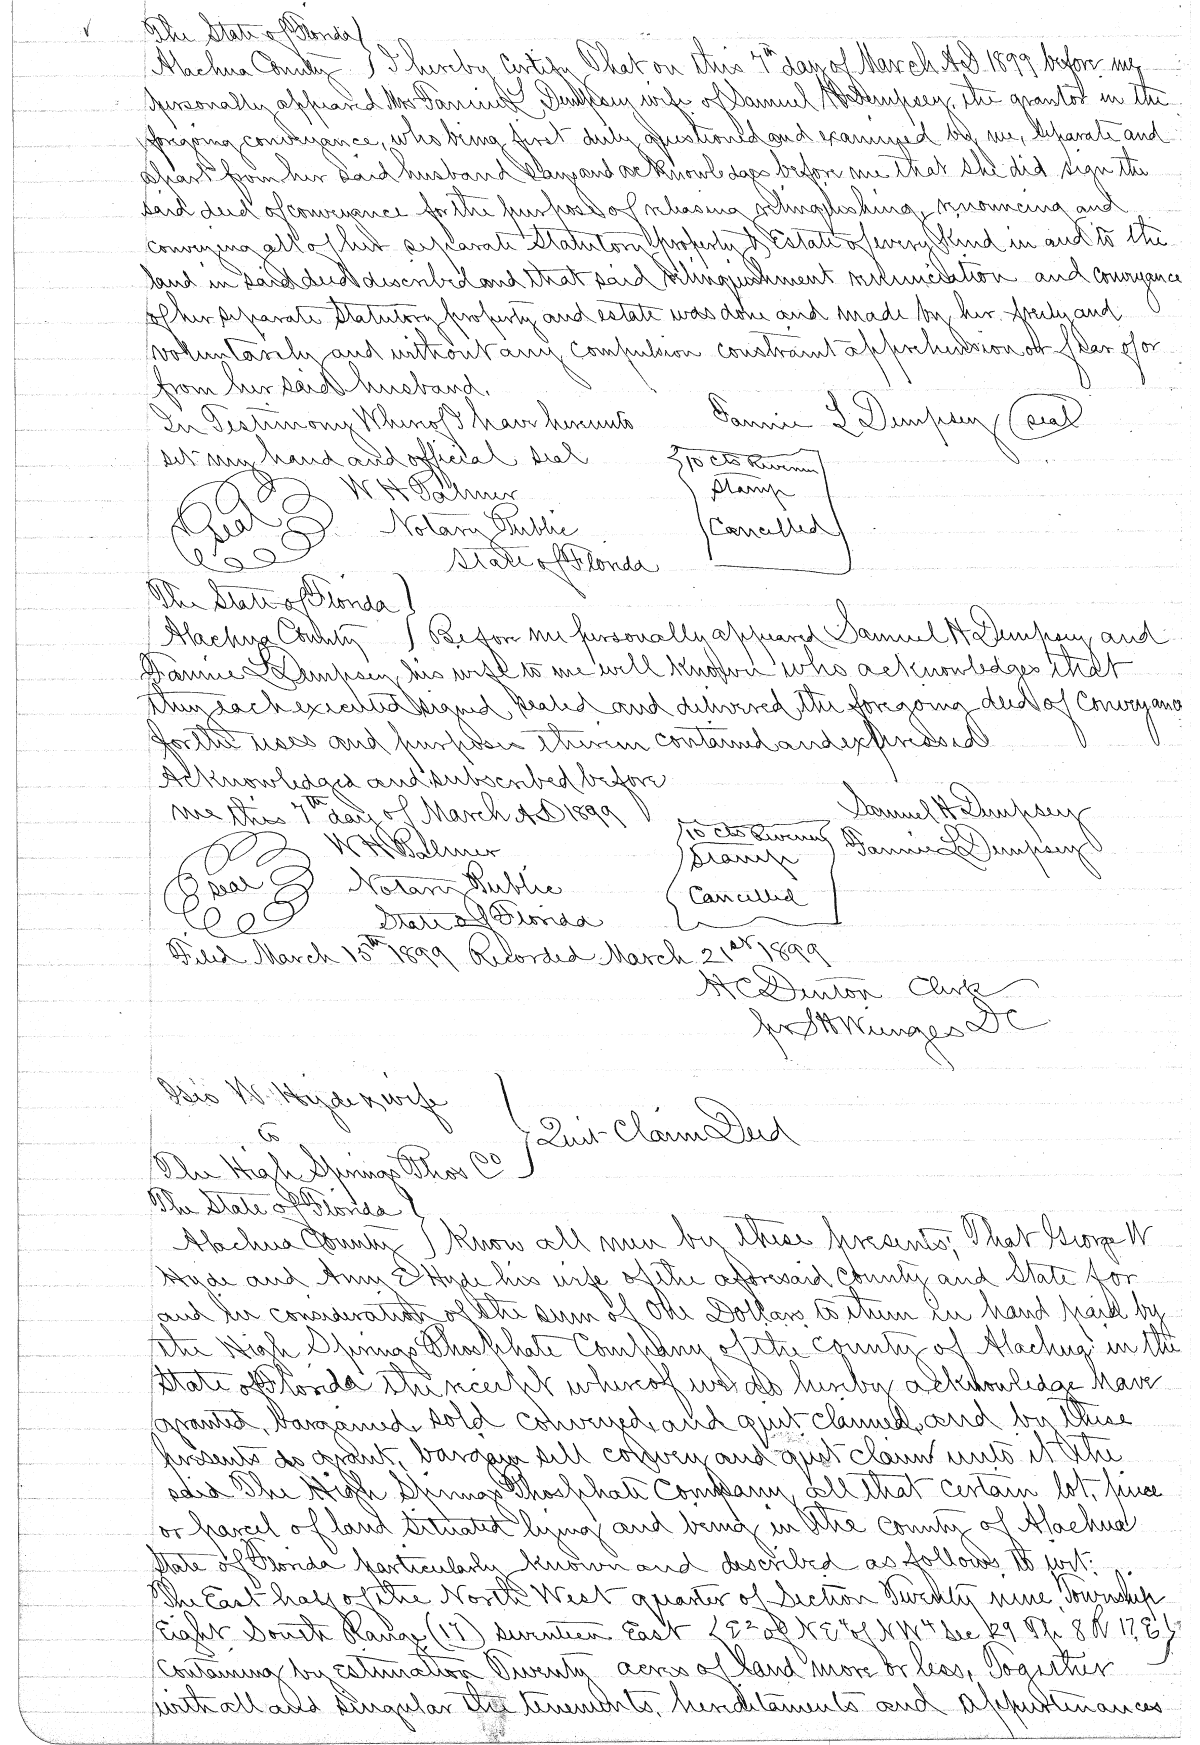 The State of Florida }
Alachua County } I hereby Certify That on this 7th day of March A.D 1899 before me
personally appeared Mrs Fannie L Dempsey wife of Samuel H Dempsey, the grantor in the
foregoing conveyance, who being first duly questioned and examined by me, separate and
apart from her said husband says and acknowledges before me that she did sign the
said deed of conveyance for the purpose of releasing relinquishing, renouncing and
conveying all of her separate Statutory property & Estate of every kind in and to the
land in said deed described and that said relinquishment renunciation and conveyance
of her separate Statutory property and estate was done and made by her freely and
voluntarily and without any compulsion constraint apprehension or fear of or
from her said husband.
In Testimony Whereof I have hereunto Fannie L Dempsey (seal)
set my hand and official seal
{10 cts Revenue
Stamp
Cancelled}
(Seal) W H Palmer
Notary Public
State of Florida
The State of Florida }
Alachua County } Before me personally appeared Samuel H Dempsey and
Fannie L Dempsey his wife to me well known who acknowledges that
they each executed signed sealed and delivered the foregoing deed of Conveyance
for the uses and purposes therein contained and expressed
Acknowledged and subscribed before
me this 7th day of March A D 1899
Samuel H Dempsey
Fannie L Dempsey
{10 cts Revenue
Stamp
Cancelled}
(Seal) W H Palmer
Notary Public
State of Florida
Filed March 15th 1899 Recorded March 21st 1899
H C Denton Clerk
pr S H Wienges D C
Geo W. Hyde & wife
to } Quit Claim Deed
The High Springs Phos Co
The State of Florida }
Alachua County } Know all men by these presents, That George W
Hyde and Amy E Hyde his wife of the aforesaid County and State for
and in consideration of the sum of One Dollars to them in hand paid by
the High Springs Phosphate Company of the county of Alachua in the
State of Florida the receipt whereof we do hereby acknowledge have
granted, bargained, sold conveyed and quit claimed, and by these
presents do grant, bargain sell convey and quit claim unto it the
said The High Springs Phosphate Company, all that certain lot, piece
or parcel of land situated lying and being in the County of Alachua
State of Florida particularly known and described as follows, to wit:
The East half of the North West quarter of Section Twenty nine, Township
Eight South Range (17) seventeen East {E2 of NE4 of NW4 Sec 29 Tp 8 R 17 E}
Containing by Estimation Twenty acres of land more or less, Together
with all and singular the tenements, hereditaments and appurtenances